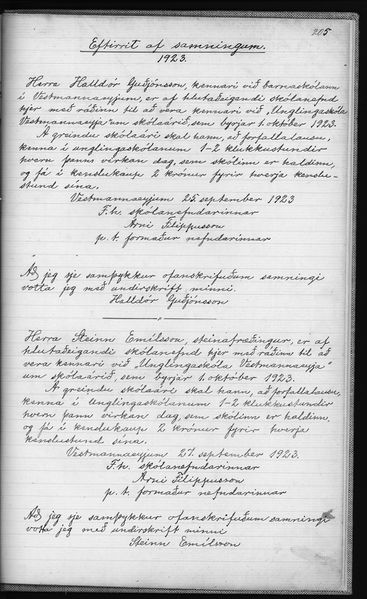 205
Eftirrit af samningum.
1923.
Herra Halldór Guðjónsson, kennari við barnaskólann
í Vestmannaeyjum, er af hlutaðeigandi skólanefnd
hjer með ráðinn til að vera kennari við „Unglingaskóla
Vestmannaeyja" um skólaárið, sem byrjar 1. október 1923.
Á greindu skólaári skal hann, að forfallalausu,
kenna í unglingaskólanum 1-2 klukkustundir
hvern þann virkan dag, sem skólinn er haldinn,
og fá í kenslukaup 2 krónur fyrir hverja kenslu-
stund sína.
Vestmannaeyjum 25. september 1923
F.h. skólanefndarinnar
Árni Filippusson
p. t. formaður nefndarinnar
Að jeg sje samþykkur ofanskrifuðum samningi
votta jeg með undirskrift minni.
Halldór Guðjónsson
Herra Steinn Emilsson, steinafræðingur, er af
hlutaðeigandi skólanefnd hjer með ráðinn til að
vera kennari við „Unglingaskóla Vestmannaeyja"
um skólaárið, sem byrjar 1. október 1923.
Á greindu skólaári skal hann, að forfallalausu,
kenna í Unglingaskólanum 1-2 klukkustundir
hvern þann virkan dag, sem skólinn er haldinn,
og fá í kenslukaup 2 krónur fyrir hverja
kenslustund sína.
Vestmannaeyjum 27. september 1923.
F.h. skólanefndarinnar
Árni Filippusson
p. t. formaður nefndarinnar
Að jeg sje samþykkur ofanskrifuðum samningi
votta jeg með undirskrift minni
Steinn Emilsson